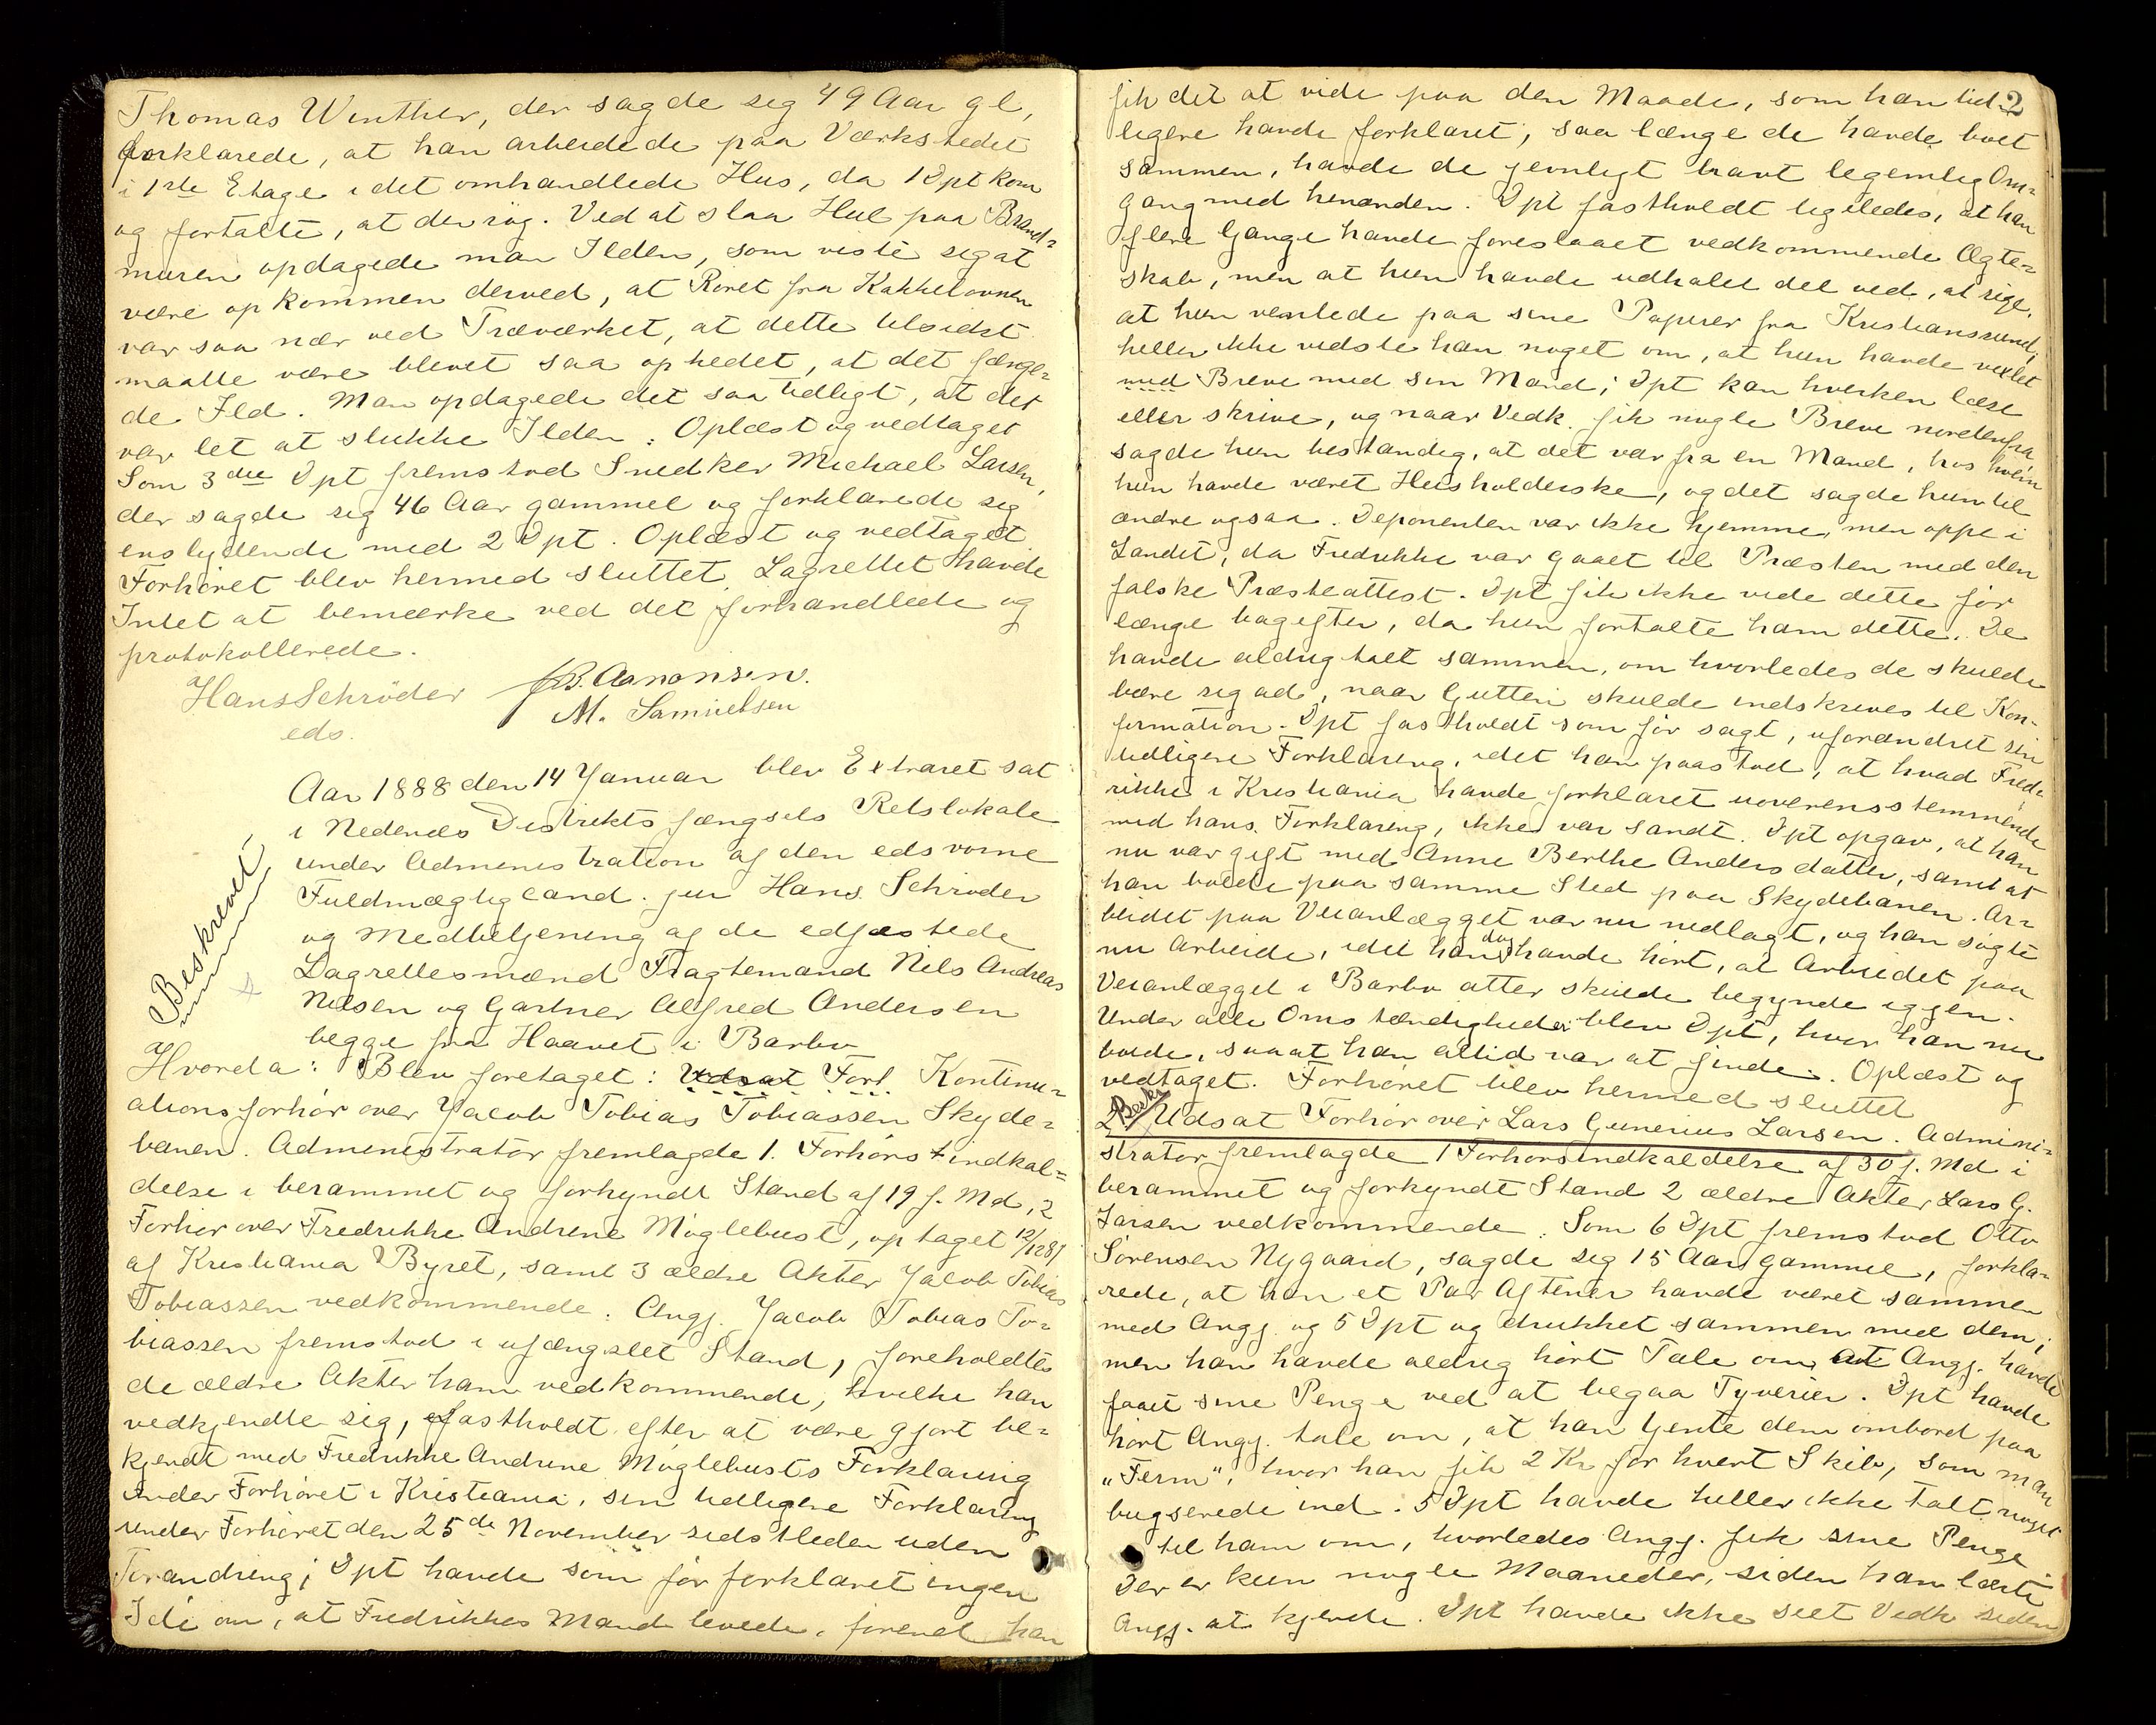 Thomas Winther, der sagde sig 49 Aar gl,
forklarede, at han arbeidede paa Værkstedet
i 1ste Etage i det omhandlede Hus, da 1 Dpt kom
og fortalte, at der røg. Ved at slaa Hul paa Brand-
muren opdagede man Ilden, som viste sig at
være opkommen derved, at Røret fra Kakkelovnen
var saa nær ved Træværket, at dette tilsidst
maatte være blevet saa ophedet, at det fænge-
de Ild. Man opdagede det saa tidligt, at det
var let at slukke Ilden. Oplæst og vedtaget
Som 3die Dpt fremstod Snedker Michael Larsen,
der sagde sig 46 Aar gammel og forklarede sig
enslydende med 2 Dpt. Oplæst og vedtaget
Forhøret blev hermed sluttet. Lagrettet havde
Intet at bemærke ved det forhandlede og
protokollerede.
Hans Schrøder J.B. Aanonsen.
eds. M. Samuelsen
Aar 1888 den 14 Januar blev Extraret sat
i Nedenæs Distrikts fængsels Retslokale
under Administration af den edsvorne
Fuldmægtig cand. jur Hans Schrøder
og Medbetjening af de edfæstede
Lagrettesmænd Fragtemand Nils Andreas
Nilsen og Gartner Alfred Andersen
begge fra Haavet i Barbo
Beskrevet
Hvorda: Blev foretaget: Udsat Forf. Kontinu-
ationsforhør over Jacob Tobias Tobiassen Skyde-
banen. Administrator fremlagde 1. Forhørsindkal-
delse i berammet og forkyndt Stand af 19 f. Md, 2
Forhør over Fredrikke Andrine Møglebust, optaget 12/12 87
af Kristiania Byret, samt 3 ældre Akter Jacob Tobias
Tobiassen vedkommende. Angj. Jacob Tobias To-
biassen fremstod i ufængslet Stand, foreholdtes
de ældre Akter ham vedkommende, hvilke han
vedkjendte sig, fastholdt efter at være gjort be-
kjendt med Fredrikke Andrine Møglebusts Forklaring
under Forhøret i Kristiania, sin tidligere Forklaring
under Forhøret den 25de November sidstleden uden
Forandring; Dpt havde som før forklaret ingen
Idé om, at Fredrikkes Mand levede, førend han
2
fik det at vide paa den Maade, som han tid-
ligere havde forklaret; saa længe de havde boet
sammen, havde de jevnligt havt legemlig Om-
gang med hinanden. Dpt fastholdt ligeledes, at han
flere Gange havde foreslaaet vedkommende Ægte-
skab, men at hun havde udhalet det ved, at sige,
at hun ventede paa sine Papirer fra Kristianssund,
heller ikke vidste han noget om, at hun havde vexlet
med Breve med sin Mand; Dpt kan hverken læse
eller skrive, og naar Vedk. fik nogle Breve nordenfra
sagde hun bestandig, at det var fra en Mand, hos hvem
hun havde været Husholderske, og det sagde hun til
andre ogsaa. Deponenten var ikke hjemme, men oppe i
Landet, da Fredrikke var gaaet til Præsten med den
falske Præsteattest. Dpt fik ikke vide dette før
længe bagefter, da hun fortalte ham dette. De
havde aldrig talt sammen, om hvorledes de skulde
bære sig ad, naar Gutten skulde indskrives til Kon-
firmation. Dpt fastholdt som før sagt, uforandret sin
tidligere Forklaring, idet han paastod, at hvad Fred-
rikke i Kristiania havde forklaret uoverensstemmende
med hans Forklaring, ikke var sandt. Dpt opgav, at han
nu var gift med Anne Berthe Andersdatter, samt at
han boede paa samme Sted paa Skydebanen. Ar-
beidet paa Veianlægget var nu nedlagt, og han søgte
nu Arbeide, idet han dog havde hørt, at Arbeidet paa
Veianlægget i Barbo atter skulde begynde igjen.
Under alle Omstændigheder blev Dpt, hvor han nu
boede, saa at han altid var at finde. Oplæst og
vedtaget. Forhøret blev hermed sluttet
Beskr
2 Udsat Forhør over Lars Gunerius Larsen. Admini-
strator fremlagde 1 Forhørsindkaldelse af 30 f. Md i
berammet og forkyndt Stand 2 ældre Akter Lars G.
Larsen vedkommende. Som 6 Dpt fremstod Otto
Sørensen Nygaard, sagde sig 15 Aar gammel, forkla-
rede, at han et Par Aftener havde været sammen
med Angj. og 5 Dpt og drukket sammen med dem;
men han havde aldrig hørt Tale om at Angj. havde
faaet sine Penge ved at begaa Tyverier. Dpt havde
hørt Angj. tale om, at han tjente dem ombord paa
„Ferm“, hvor han fik 2 Kr for hvert Skib, som man
bugserede ind. 5 Dpt havde heller ikke talt noget
til ham om, hvorledes Angj. fik sine Penge
Der er kun nogle Maaneder, siden han lærte
Angj. at kjende. Dpt havde ikke seet Vedk siden